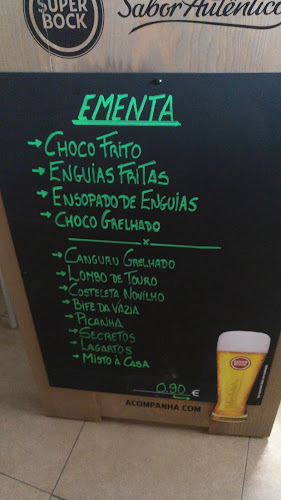 SUPER
BOCK
Sabor Autêntico
EMENTA
→ CHOCO FRITO
→ ENGUIAS FRITAS
→ ENSOPADO DE ENGUIAS
→ CHOCO GRELHADO
x
→ CANGURU GRELHADO
→ LOMBO DE TOURO
→ COSTELETA NOVILHO
→ BIFE DA VÁZIA
→ PICANHA
→ SECRETOS
→ LAGARTOS
→ MISTO À CASA
0,90 €
ACOMPANHA COM